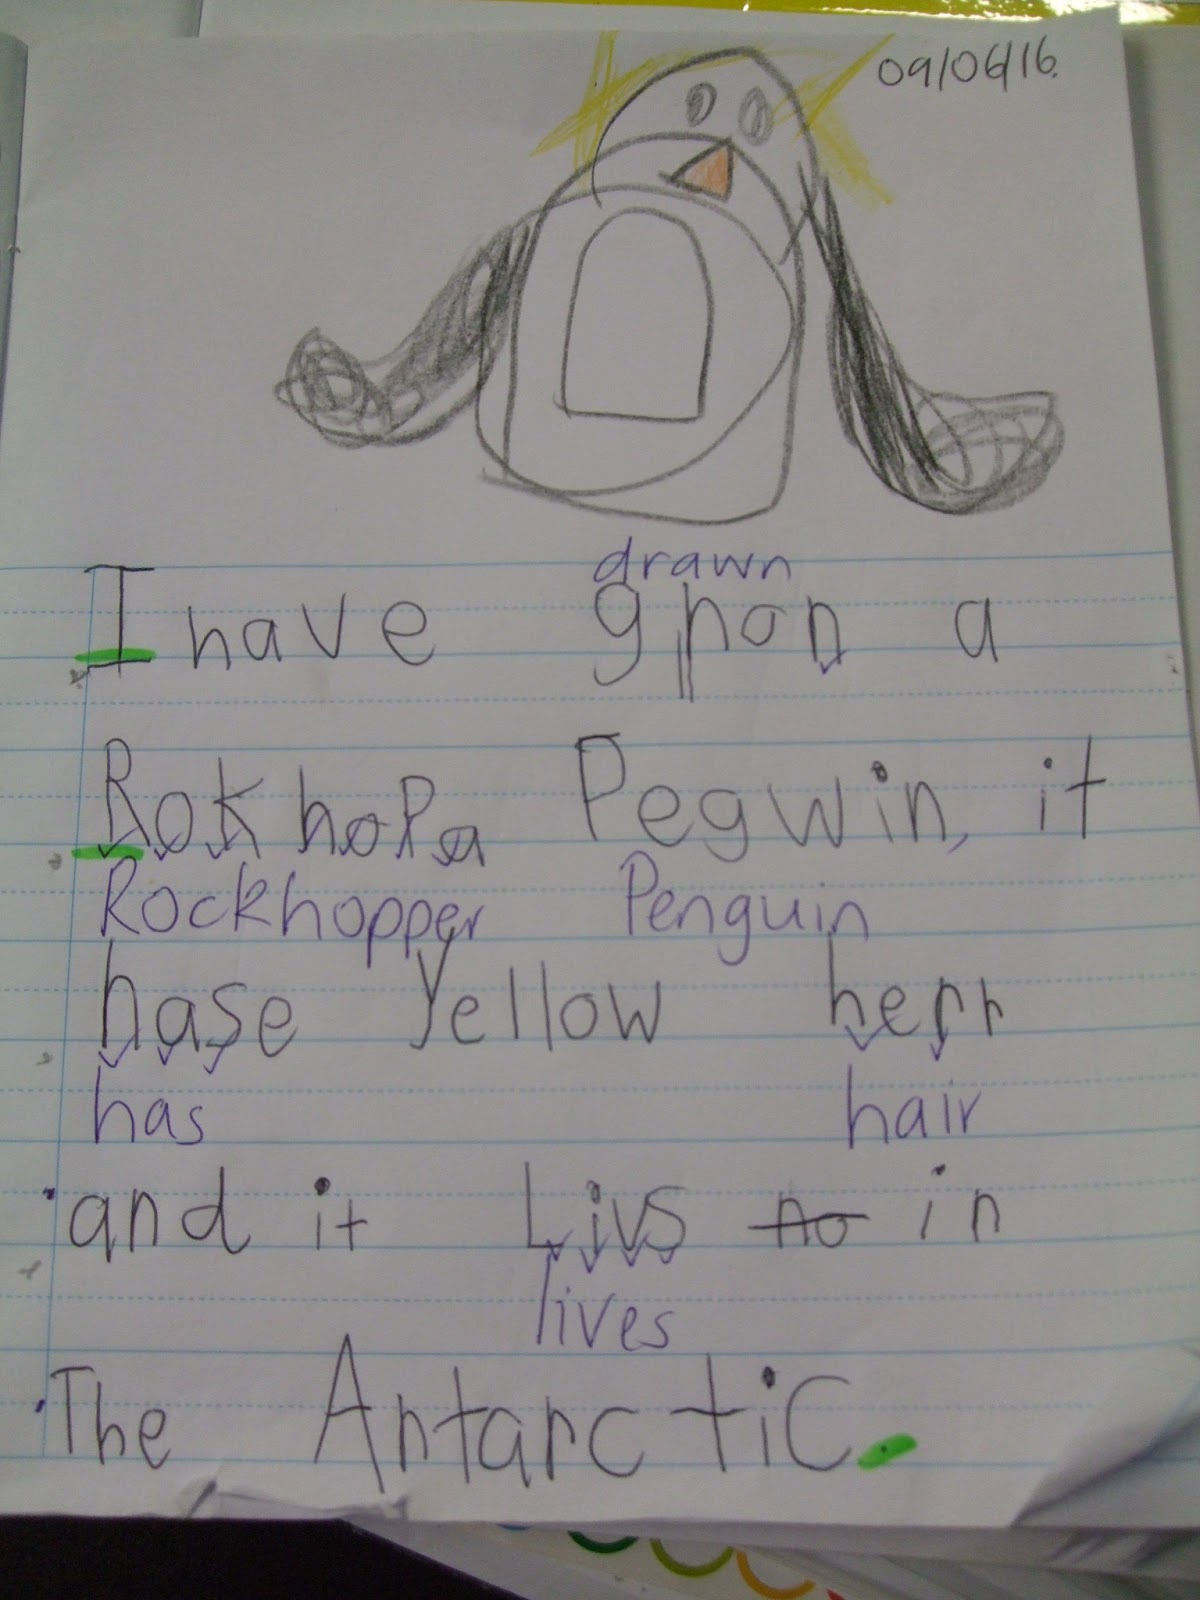 09/06/16.
drawn
I have gron a
Rokhopa Pegwin, it
Rockhopper Penguin
hase Yellow herr
has hair
and it Livs no in
lives
The Antarctic.